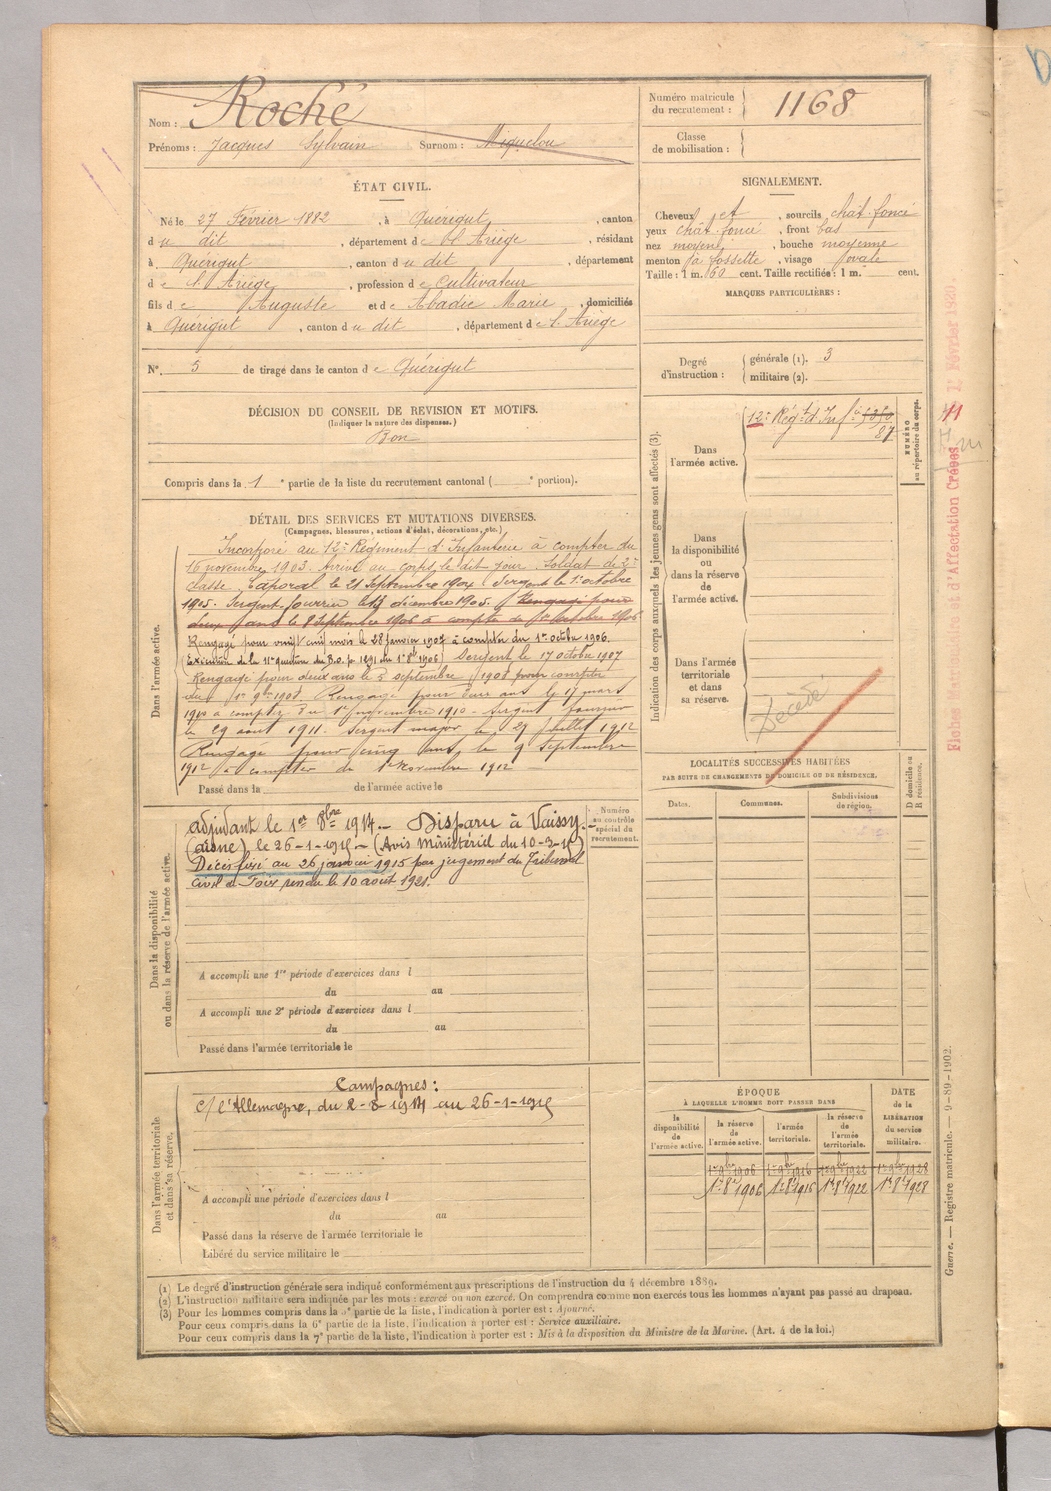 Nom : Roché
Prénoms : Jacques Sylvain Surnom : Miquelou
Numéro matricule du recrutement : 1168
Classe de mobilisation :
ÉTAT CIVIL.
Né le 27 Février 1882, à Quérigut, canton
du dit, département de l'Ariège, résidant
à Quérigut, canton du dit, département
de l'Ariège, profession de Cultivateur
fils de Auguste et de Abadie Marie, domiciliés
à Quérigut, canton du dit, département de l'Ariège
N°. 5 de tirage dans le canton de Quérigut
SIGNALEMENT.
Cheveux et, sourcils chât. foncé
yeux chât. foncé, front bas
nez moyen, bouche moyenne
menton à fossette, visage ovale
Taille : 1 m. 60 cent. Taille rectifiée : 1 m. cent.
MARQUES PARTICULIÈRES :
Degré d'instruction : générale (1). 3
militaire (2).
DÉCISION DU CONSEIL DE REVISION ET MOTIFS.
(Indiquer la nature des dispenses.)
Bon
Compris dans la 1e partie de la liste du recrutement cantonal ( e portion).
DÉTAIL DES SERVICES ET MUTATIONS DIVERSES.
(Campagnes, blessures, actions d'éclat, décorations, etc.)
Dans l'armée active.
Incorporé au 12e Régiment d'Infanterie à compter du
16 novembre 1903. Arrivé au corps le dit jour. Soldat de 2e
classe. Caporal le 21 Septembre 1904. Sergent le 1er octobre
1905. Sergent fourrier le 13 décembre 1905. Rengagé pour
deux ans le 8 Septembre 1906 à compter du 1er Octobre 1906
Rengagé pour vingt cinq mois le 28 janvier 1907 à compter du 1er octobre 1906.
(Exécution de la 11e question du B.O. p. 1291 du 1er 8bre 1906) Sergent le 17 octobre 1907
Rengagé pour deux ans le 5 septembre 1908 pour compter
du 1er 9bre 1908. Rengagé pour deux ans le 17 mars
1910 à compter du 1er novembre 1910. Sergent fourrier
le 29 août 1911. Sergent major le 27 Juillet 1912
Rengagé pour cinq ans le 9 Septembre
1912 à compter du 1er Novembre 1912
Passé dans la de l'armée active le
Dans la disponibilité ou dans la réserve de l'armée active.
Adjudant le 1er 8bre 1914. – Disparu à Vaissy.-
(Aisne) le 26-1-1915 – (Avis Ministériel du 10-3-15)
Décès fixé au 26 janvier 1915 par jugement du Tribunal
civil de Foix rendu le 10 août 1921.
Numéro au contrôle spécial du recrutement.
A accompli une 1re période d'exercices dans l
du au
A accompli une 2e période d'exercices dans l
du au
Passé dans l'armée territoriale le
Dans l'armée territoriale et dans sa réserve.
Campagnes :
C/ l'Allemagne, du 2-8-1914 au 26-1-1915
A accompli une période d'exercices dans l
du au
Passé dans la réserve de l'armée territoriale le
Libéré du service militaire le
Indication des corps auxquels les jeunes gens sont affectés (3).
NUMÉRO au répertoire du corps.
Dans l'armée active.
12e Régt d'Infie 5350
87
Dans la disponibilité ou dans la réserve de l'armée active.
Dans l'armée territoriale et dans sa réserve.
Décédé
LOCALITÉS SUCCESSIVES HABITÉES
PAR SUITE DE CHANGEMENTS DE DOMICILE OU DE RÉSIDENCE.
Dates. Communes. Subdivisions de région. D domicile ou R résidence.
ÉPOQUE
À LAQUELLE L'HOMME DOIT PASSER DANS
DATE de la LIBÉRATION du service militaire.
la disponibilité de l'armée active. la réserve de l'armée active. l'armée territoriale. la réserve de l'armée territoriale.
1er 9bre 1906 1er 9bre 1916 1er 9bre 1922 1er 9bre 1928
1er 8bre 1906 1er 8bre 1916 1er 8bre 1922 1er 8bre 1928
(1) Le degré d'instruction générale sera indiqué conformément aux prescriptions de l'instruction du 4 décembre 1889.
(2) L'instruction militaire sera indiquée par les mots : exercé ou non exercé. On comprendra comme non exercés tous les hommes n'ayant pas passé au drapeau.
(3) Pour les hommes compris dans la 5e partie de la liste, l'indication à porter est : Ajourné.
Pour ceux compris dans la 6e partie de la liste, l'indication à porter est : Service auxiliaire.
Pour ceux compris dans la 7e partie de la liste, l'indication à porter est : Mis à la disposition du Ministre de la Marine. (Art. 4 de la loi.)
d'Affectation Créées 1er Février 1920
Guerre. — Registre matricule. — 9-89-1902.